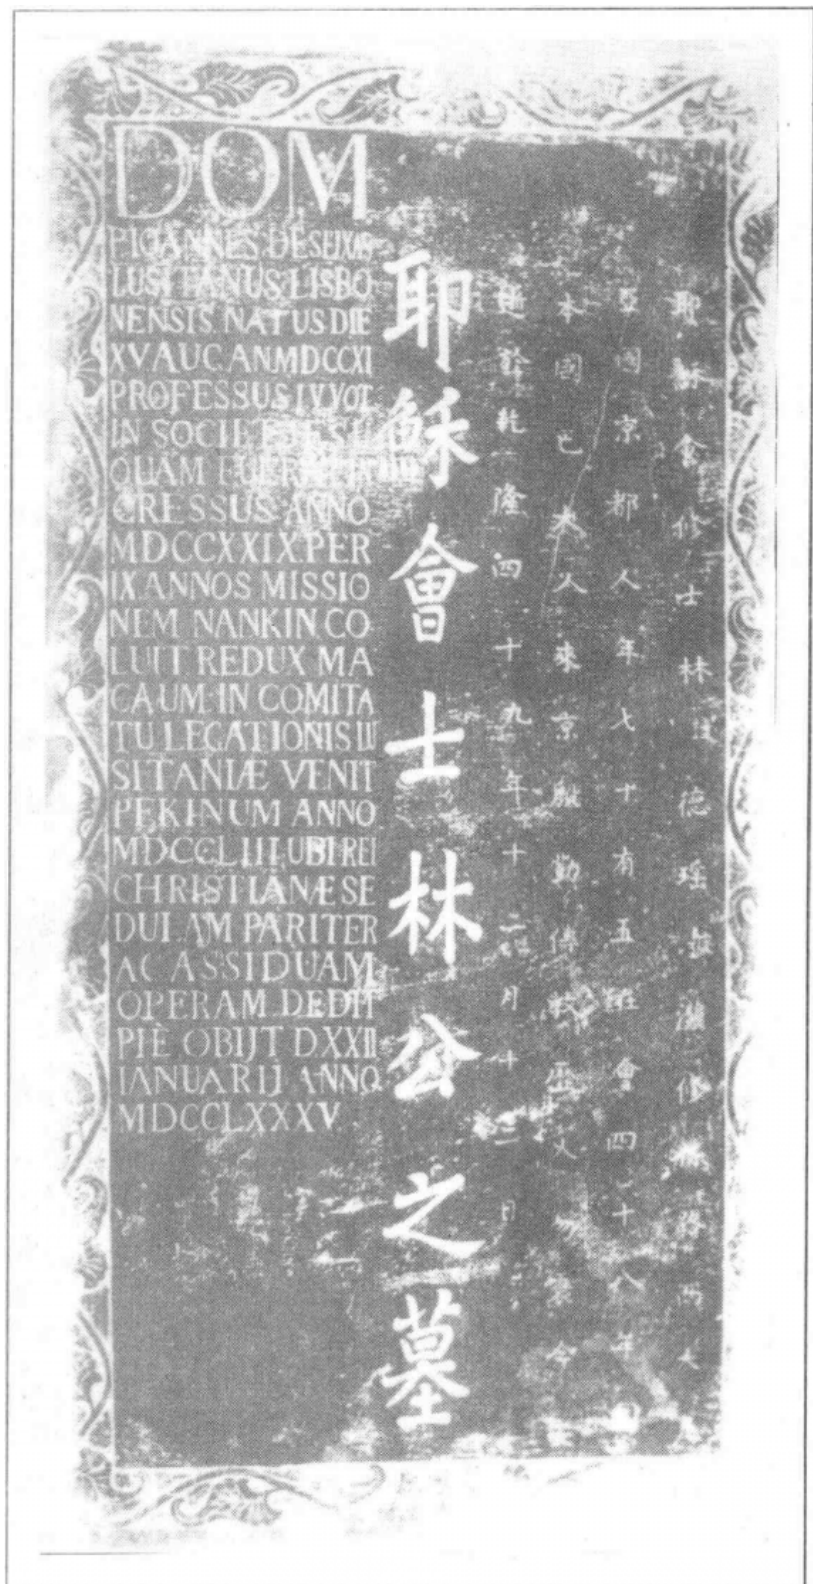 DOM
P IOANNES DE SEIXAS
LUSITANUS LISBO
NENSIS. NATUS DIE
XV AUG. AN MDCCXI
PROFESSUS IV VOT.
IN SOCIET IESU
QUAM FUERAT IN
GRESSUS ANNO
MDCCXXIX. PER
IX. ANNOS MISSIO
NEM NANKIN. CO
LUIT REDUX MA
CAUM IN COMITA
TU LEGATIONIS LU
SITANIÆ VENIT
PEKINUM ANNO
MDCCLIII. UBI REI
CHRISTIANÆ SE
DULAM PARITER
AC ASSIDUAM
OPERAM DEDIT
PIÈ OBIJT D. XXII
IANUARIJ ANNO
MDCCLXXXV
耶穌會士林公之墓
耶穌會修士林 德瑶 修
國京都人年七十有五在會四十八年
本國巴 大人來京 勤傳教 今
於乾隆四十九年十二月十二日